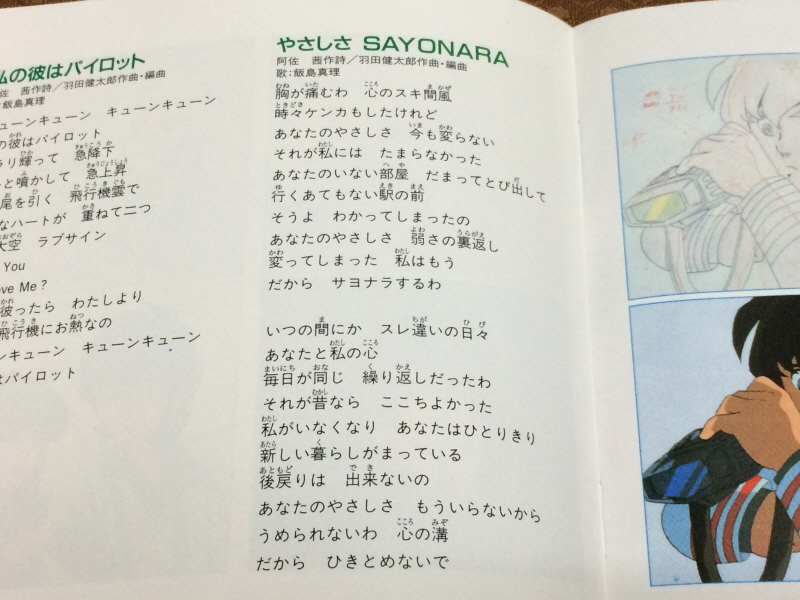 私の彼はパイロット
佐 茜作詩／羽田健太郎作曲・編曲
飯島真理
ューンキューン キューンキューン
の彼はパイロット
ラリ輝って 急降下
と噴かして 急上昇
尾を引く 飛行機雲で
なハートが 重ねて二つ
大空 ラブサイン
You
ve Me?
彼ったら わたしより
飛行機にお熱なの
ンキューン キューンキューン
はパイロット
やさしさ SAYONARA
阿佐 茜作詩／羽田健太郎作曲・編曲
歌：飯島真理
胸が痛むわ 心のスキ間風
時々ケンカもしたけれど
あなたのやさしさ 今も変らない
それが私には たまらなかった
あなたのいない部屋 だまってとび出して
行くあてもない駅の前
そうよ わかってしまったの
あなたのやさしさ 弱さの裏返し
変ってしまった 私はもう
だから サヨナラするわ
いつの間にか スレ違いの日々
あなたと私の心
毎日が同じ 繰り返しだったわ
それが昔なら ここちよかった
私がいなくなり あなたはひとりきり
新しい暮らしがまっている
後戻りは 出来ないの
あなたのやさしさ もういらないから
うめられないわ 心の溝
だから ひきとめないで